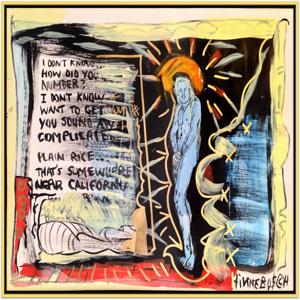 I DON'T KNOW..
HOW DID YOU
NUMBER?
I DON'T KNOW
WANT TO GET
YOU SOUND
COMPLICATED
PLAIN RICE...
THAT'S SOMEWHERE
NEAR CALIFORNIA